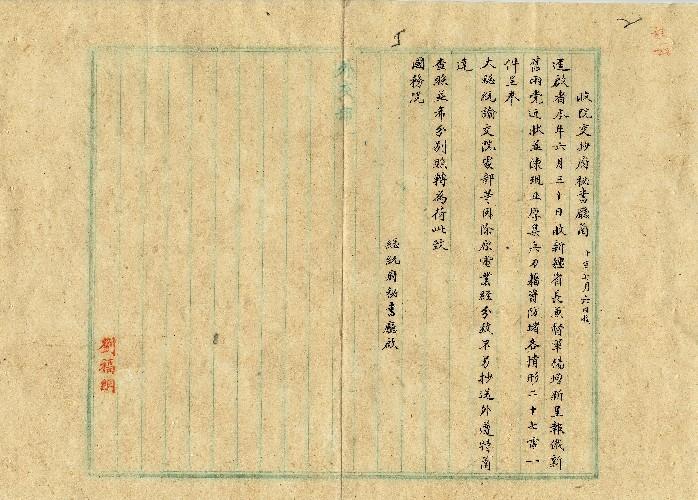 2
5
外交部
收院交抄府秘書廳函 十年七月六日收
逕啟者本年六月三十日收新疆省長兼督軍楊增新呈報俄新
舊兩党近狀並陳現正厚集兵力籌防堵各情形二十七電一
件呈奉
大總統諭交院部等因除原電業經分致不另抄送外特函
達
查照並希分別照轉為荷此致
國務院
總統府秘書廳啟
劉福